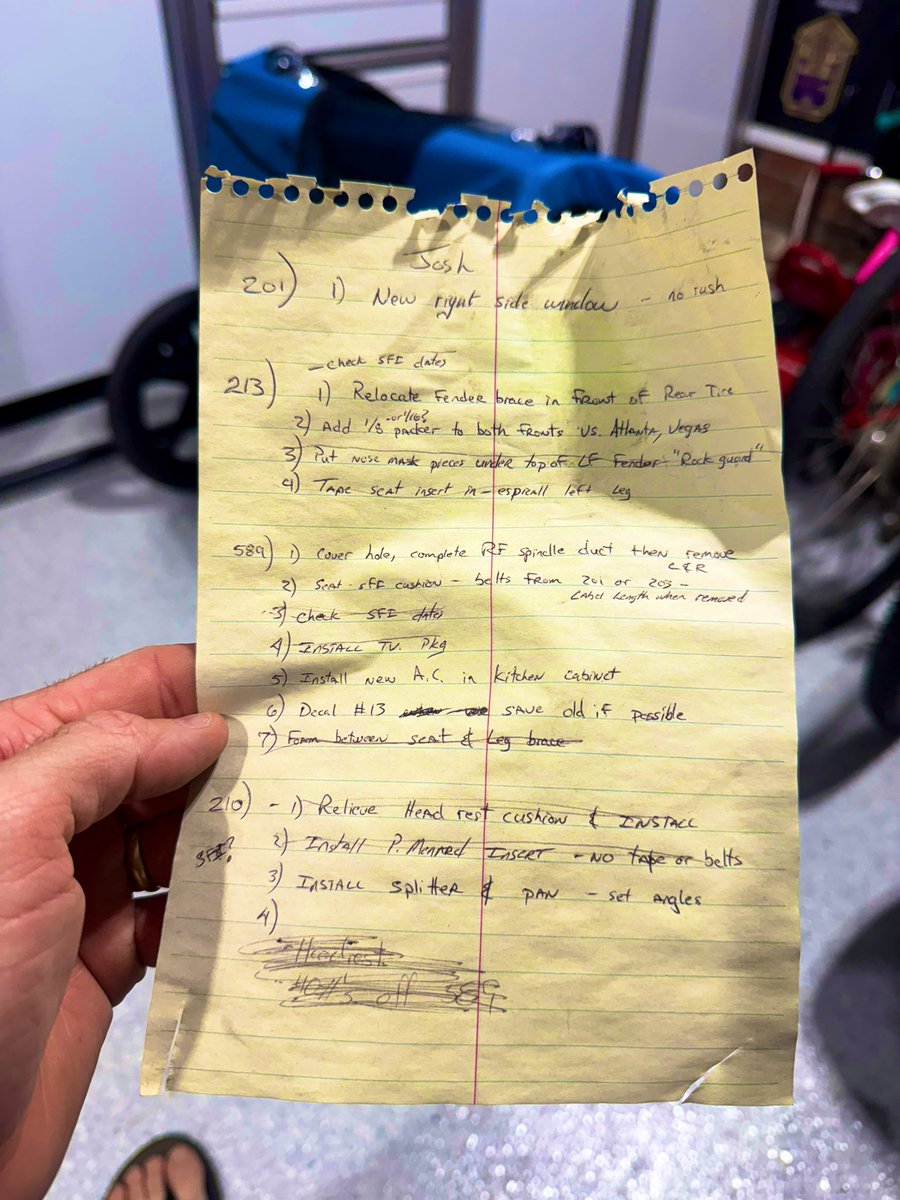 Josh
201) 1) New right side window - no rush
- check SFI dates
213) 1) Relocate Fender brace in front of Rear Tire
-or 1/16?
2) Add 1/8 packer to both fronts vs. Atlanta, Vegas
3) Put nose mask pieces under top of LF Fender "Rock guard"
4) Tape seat insert in - espicall left leg
589) 1) Cover hole, complete RF spindle duct then remove
L&R
2) Seat - SFI cushion - belts from 201 or 203 -
Label Length when removed
3) Check SFI dates
4) INSTALL TV. Pkg
5) Install new A.C. in kitchen cabinet
6) Decal #13 SAVE old if possible
7) Foam between seat & Leg brace
210) - 1) Relieve Head rest cushion & INSTALL
SFI?
2) Install P. Menard INSERT - NO tape or belts
3) INSTALL Splitter & PAN - set angles
4)
Headrest
off 589